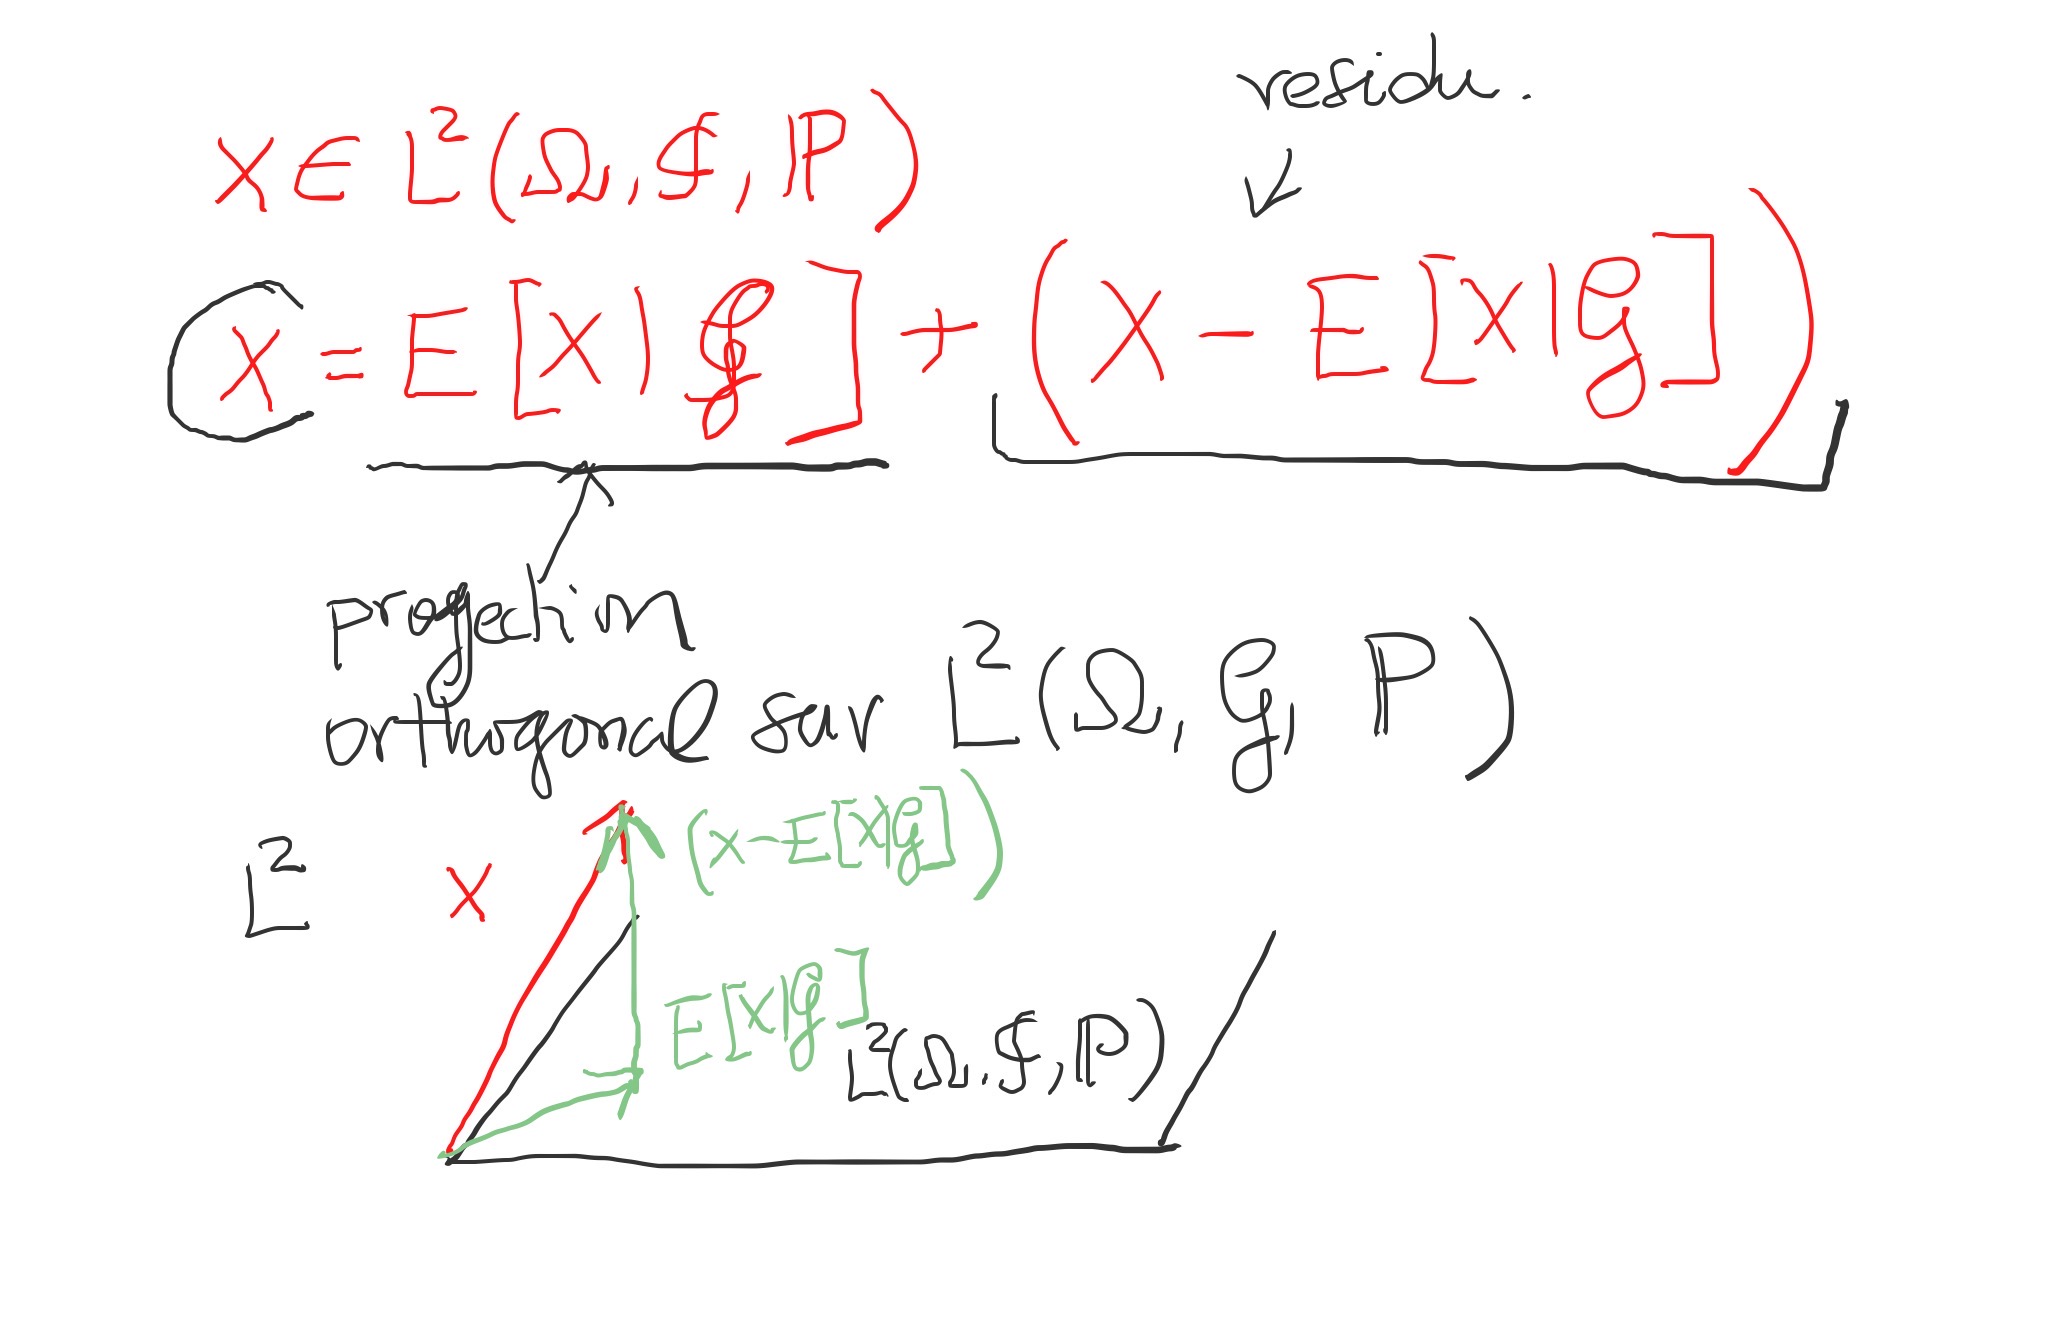 residu.
X ∈ L²(Ω, ℱ, ℙ)
X = E[X|𝒢] + (X − E[X|𝒢])
projection
orthogonal sur L²(Ω, 𝒢, ℙ)
L² X (X − E[X|𝒢])
E[X|𝒢]
L²(Ω, ℱ, ℙ)